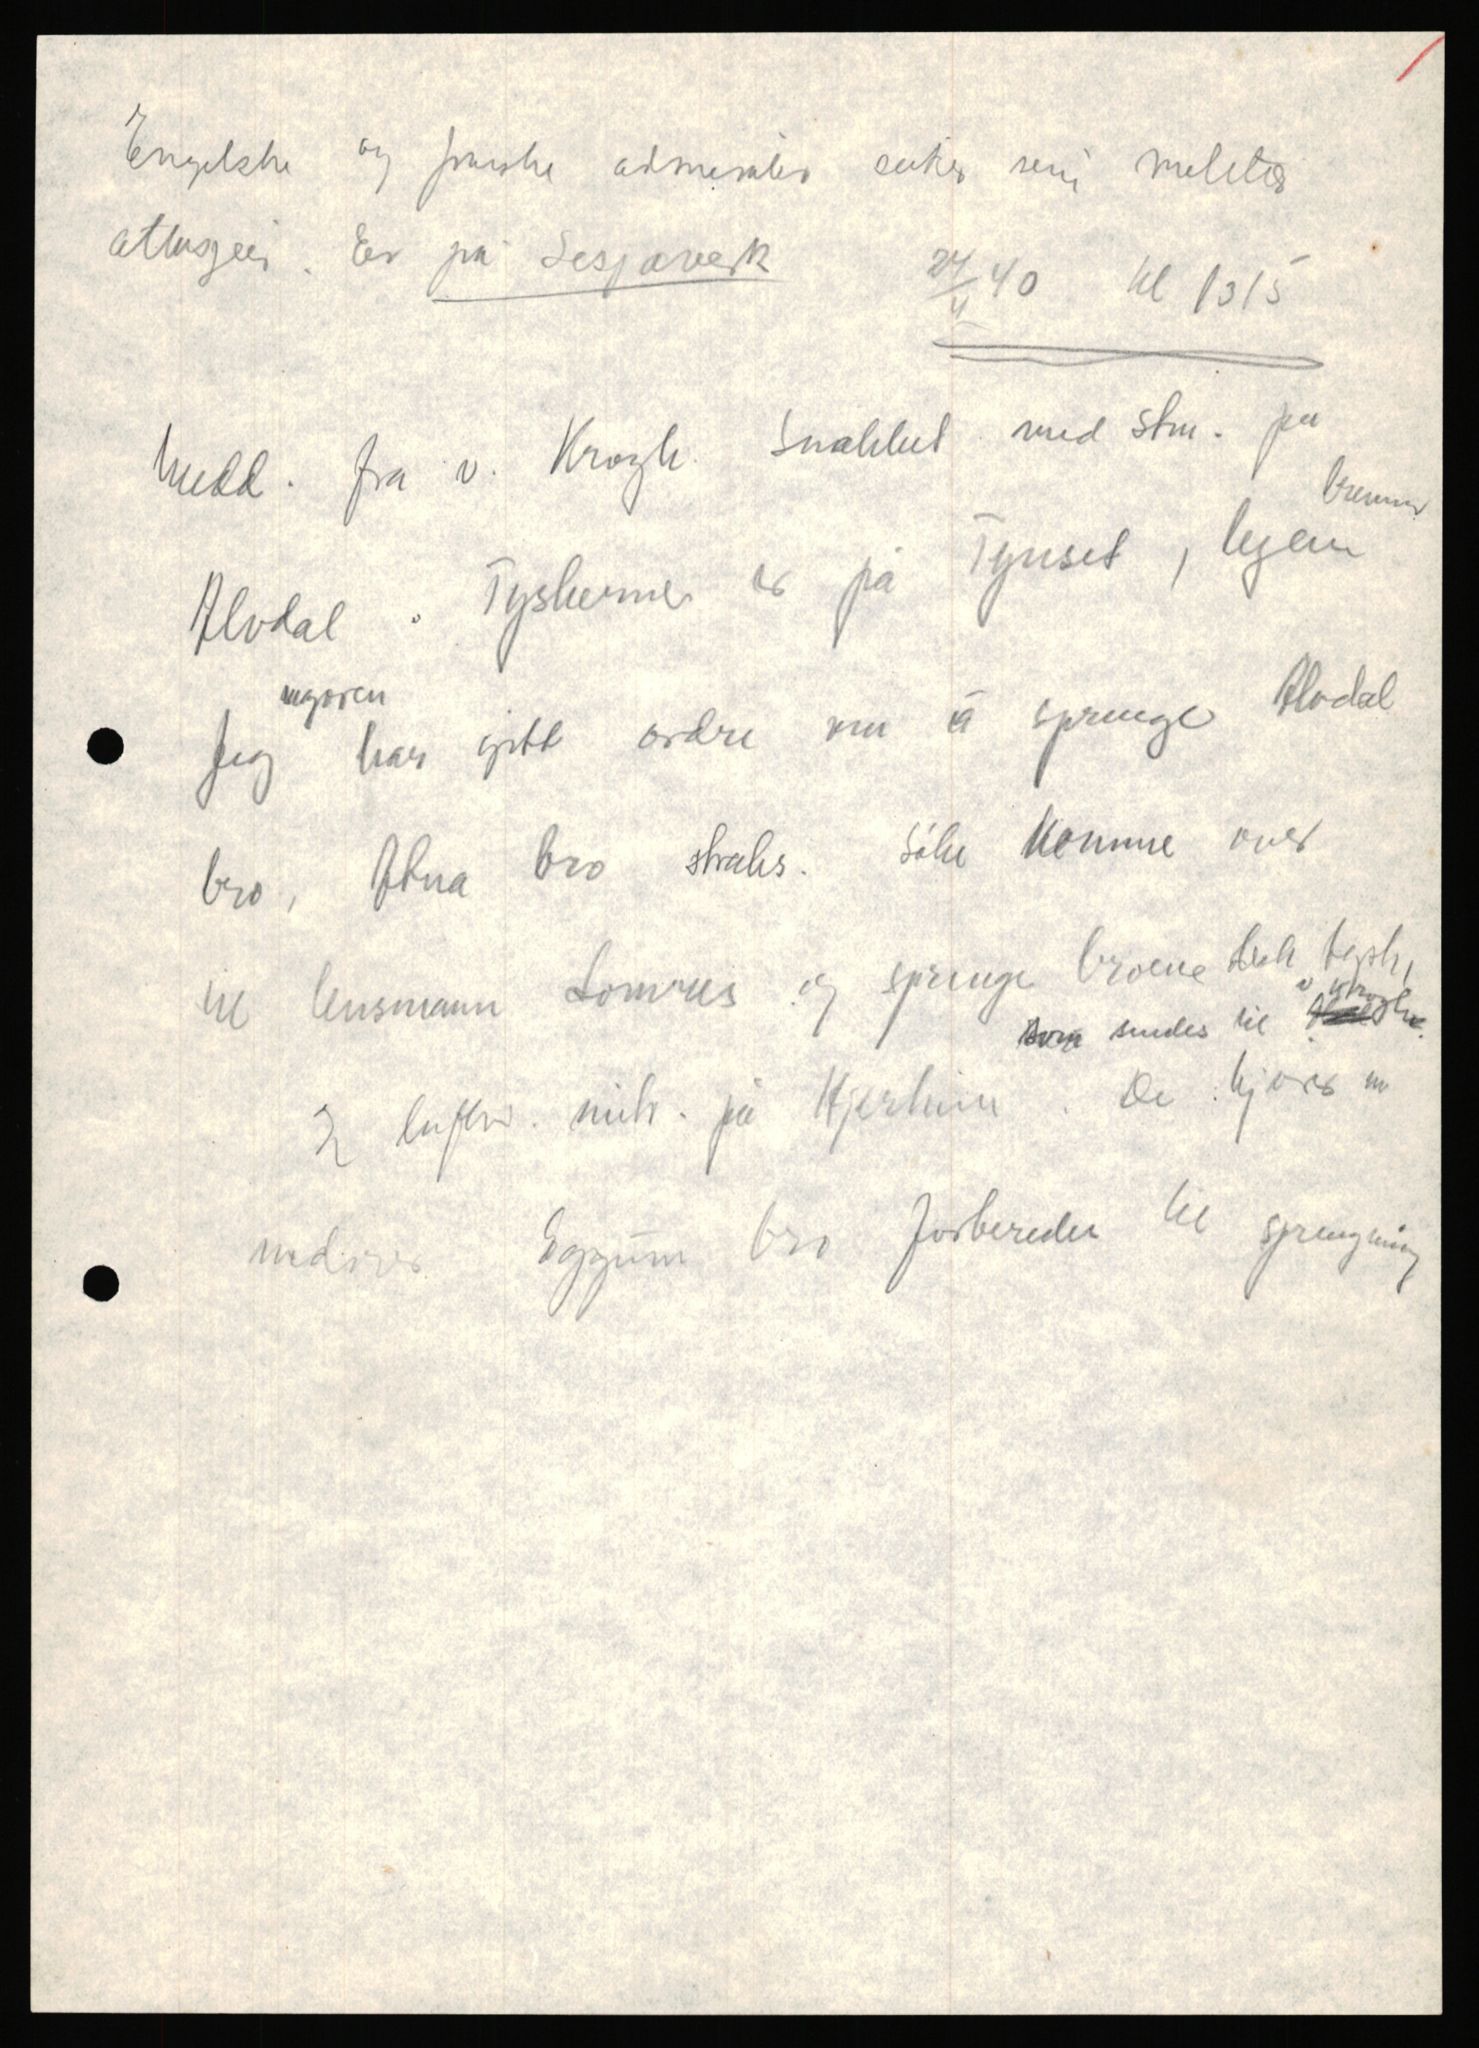 Engelske og franske admiraler søker sine militær
attasjeer. Er på Lesjaverk 24/4 40 kl 1315
Medd. fra v. Krogh. Snakket med stm. på
Alvdal. Tyskerne er på Tynset, byen brenner
majoren
Jeg har gitt ordre om å sprenge Alvdal
bro, Atna bro straks. Söke komme over
til lensmann og sprenge broene
som sendes til v Krogh
på Hjerkinn. De kjører nu
nedover Eggum bro forbereder til sprengning